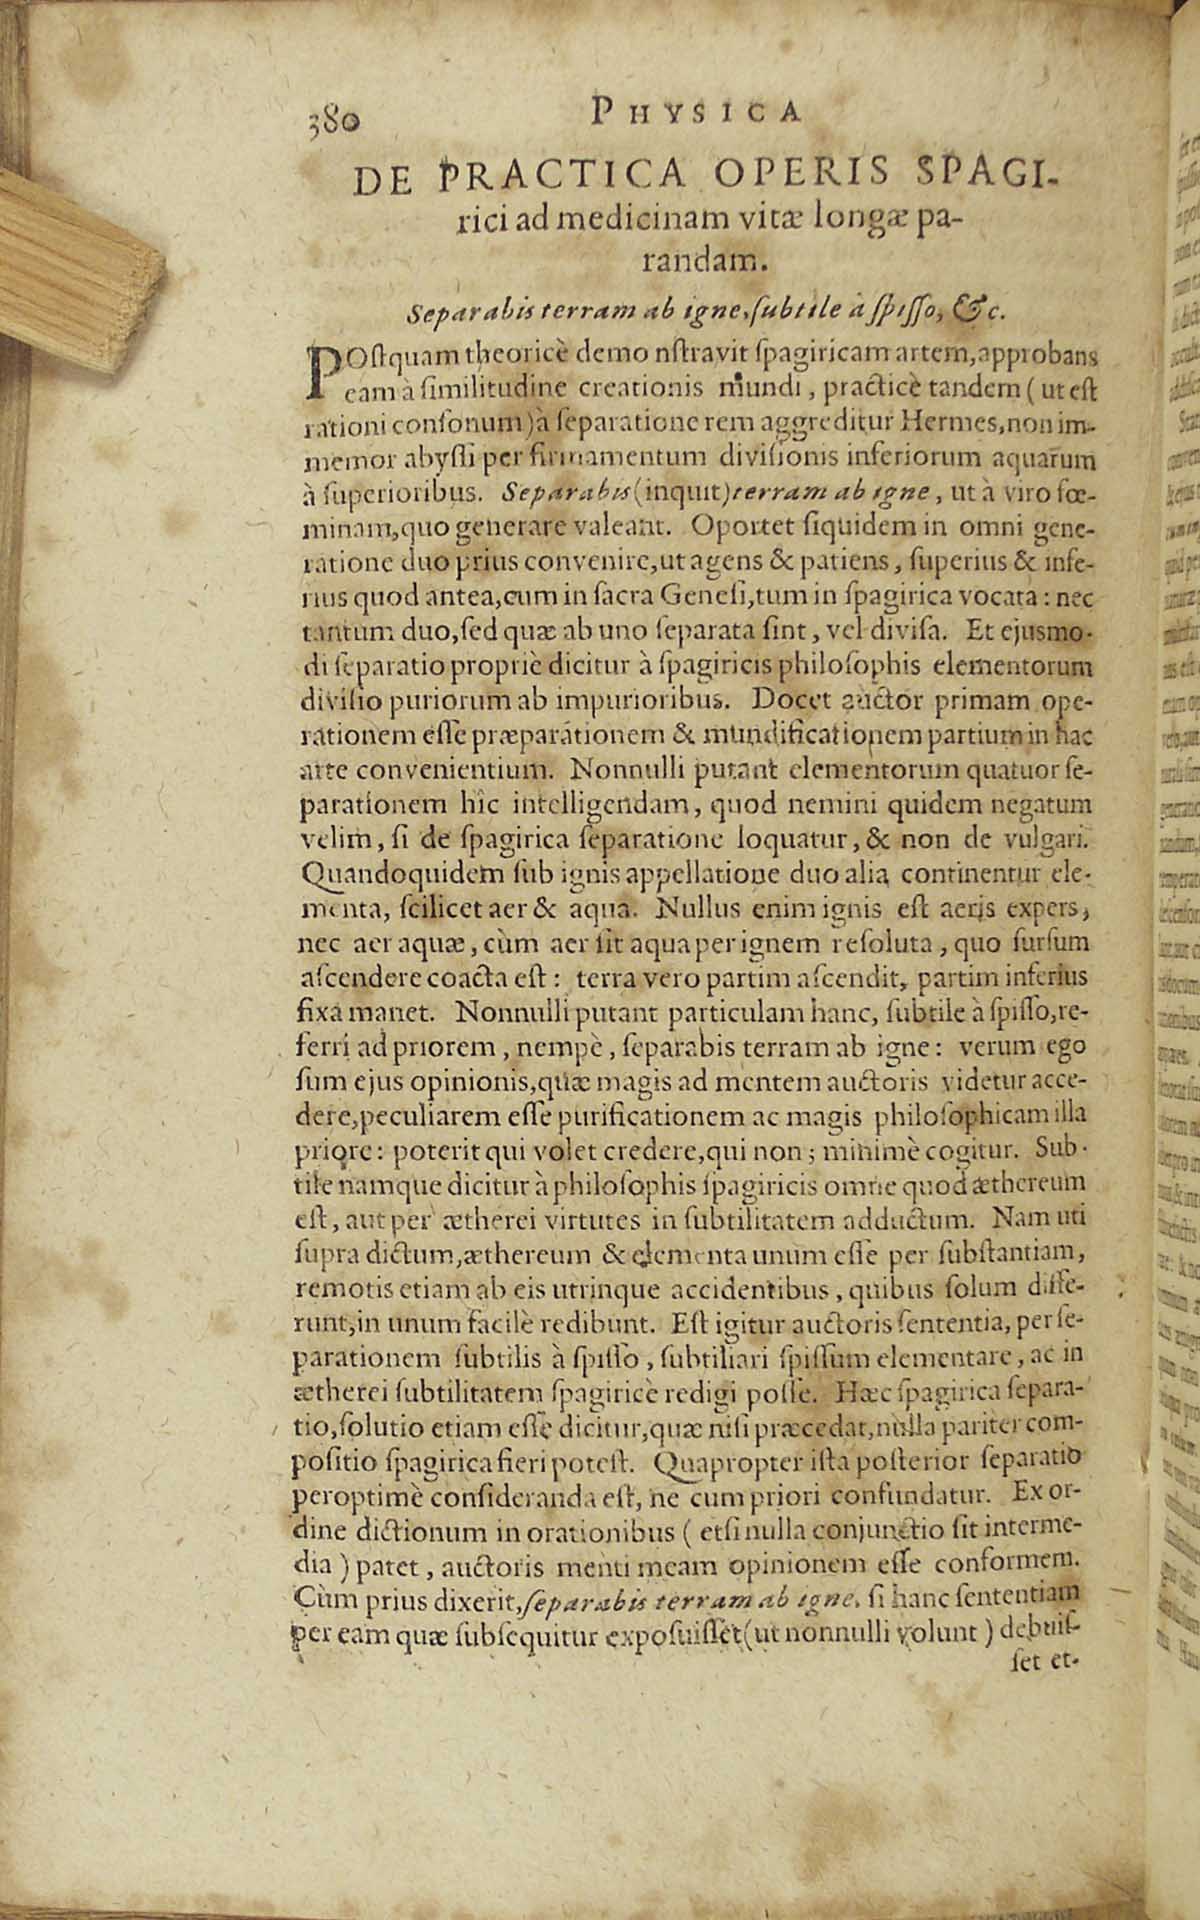 380
PHYSICA
DE PRACTICA OPERIS SPAGI-
rici ad medicinam vitæ longæ pa-
randam.
Separabis terram ab igne, ſubtile à ſpiſſo, &c.
POſtquam theoricè demo nſtravit ſpagiricam artem, approbans
eam à ſimilitudine creationis mundi, practicè tandem (ut eſt
rationi conſonum) à ſeparatione rem aggreditur Hermes, non im-
memor abyſſi per firmamentum diviſionis inferiorum aquarum
à ſuperioribus. Separabis (inquit) terram ab igne, ut à viro fœ-
minam, quo generare valeant. Oportet ſiquidem in omni gene-
ratione duo prius convenire, ut agens & patiens, ſuperius & infe-
rius quod antea, cum in ſacra Geneſi, tum in ſpagirica vocata: nec
tantum duo, ſed quæ ab uno ſeparata ſint, vel diviſa. Et ejuſmo-
di ſeparatio propriè dicitur à ſpagiricis philoſophis elementorum
diviſio puriorum ab impurioribus. Docet auctor primam ope-
rationem eſſe præparationem & mundificationem partium in hac
arte convenientium. Nonnulli putant elementorum quatuor ſe-
parationem hîc intelligendam, quod nemini quidem negatum
velim, ſi de ſpagirica ſeparatione loquatur, & non de vulgari.
Quandoquidem ſub ignis appellatione duo alia continentur ele-
menta, ſcilicet aer & aqua. Nullus enim ignis eſt aeris expers,
nec aer aquæ, cùm aer ſit aqua per ignem reſoluta, quo ſurſum
aſcendere coacta eſt: terra vero partim aſcendit, partim inferius
fixa manet. Nonnulli putant particulam hanc, ſubtile à ſpiſſo, re-
ferri ad priorem, nempè, ſeparabis terram ab igne: verum ego
ſum ejus opinionis, quæ magis ad mentem auctoris videtur acce-
dere, peculiarem eſſe purificationem ac magis philoſophicam illa
priore: poterit qui volet credere, qui non; minimè cogitur. Sub-
tile namque dicitur à philoſophis ſpagiricis omne quod æthereum
eſt, aut per ætherei virtutes in ſubtilitatem adductum. Nam uti
ſupra dictum, æthereum & elementa unum eſſe per ſubſtantiam,
remotis etiam ab eis utrinque accidentibus, quibus ſolum diffe-
runt, in unum facilè redibunt. Eſt igitur auctoris ſententia, per ſe-
parationem ſubtilis à ſpiſſo, ſubtiliari ſpiſſum elementare, ac in
ætherei ſubtilitatem ſpagiricè redigi poſſe. Hæc ſpagirica ſepara-
tio, ſolutio etiam eſſe dicitur, quæ niſi præcedat, nulla pariter com-
poſitio ſpagirica fieri poteſt. Quapropter iſta poſterior ſeparatio
peroptimè conſideranda eſt, ne cum priori confundatur. Ex or-
dine dictionum in orationibus (etſi nulla conjunctio ſit interme-
dia) patet, auctoris menti meam opinionem eſſe conformem.
Cùm prius dixerit, ſeparabis terram ab igne, ſi hanc ſententiam
per eam quæ ſubſequitur expoſuiſſet (ut nonnulli volunt) debuiſ-
ſet et-